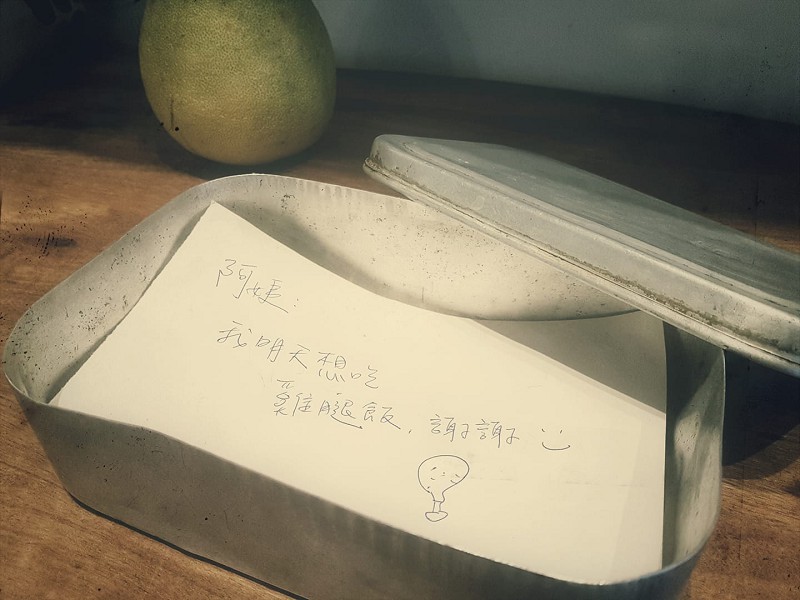 阿：
我明天想吃
雞腿飯，謝謝